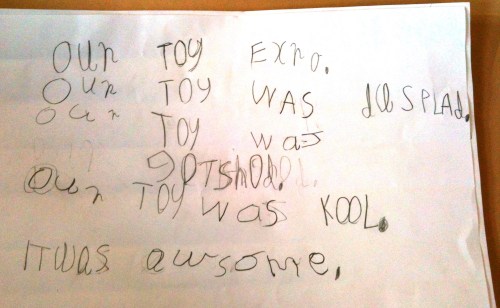 Our TOY Expo.
Our TOY WAS desplad.
Our TOY was
gotshod.
Our TOY was KOOL.
ITWAS awsome.